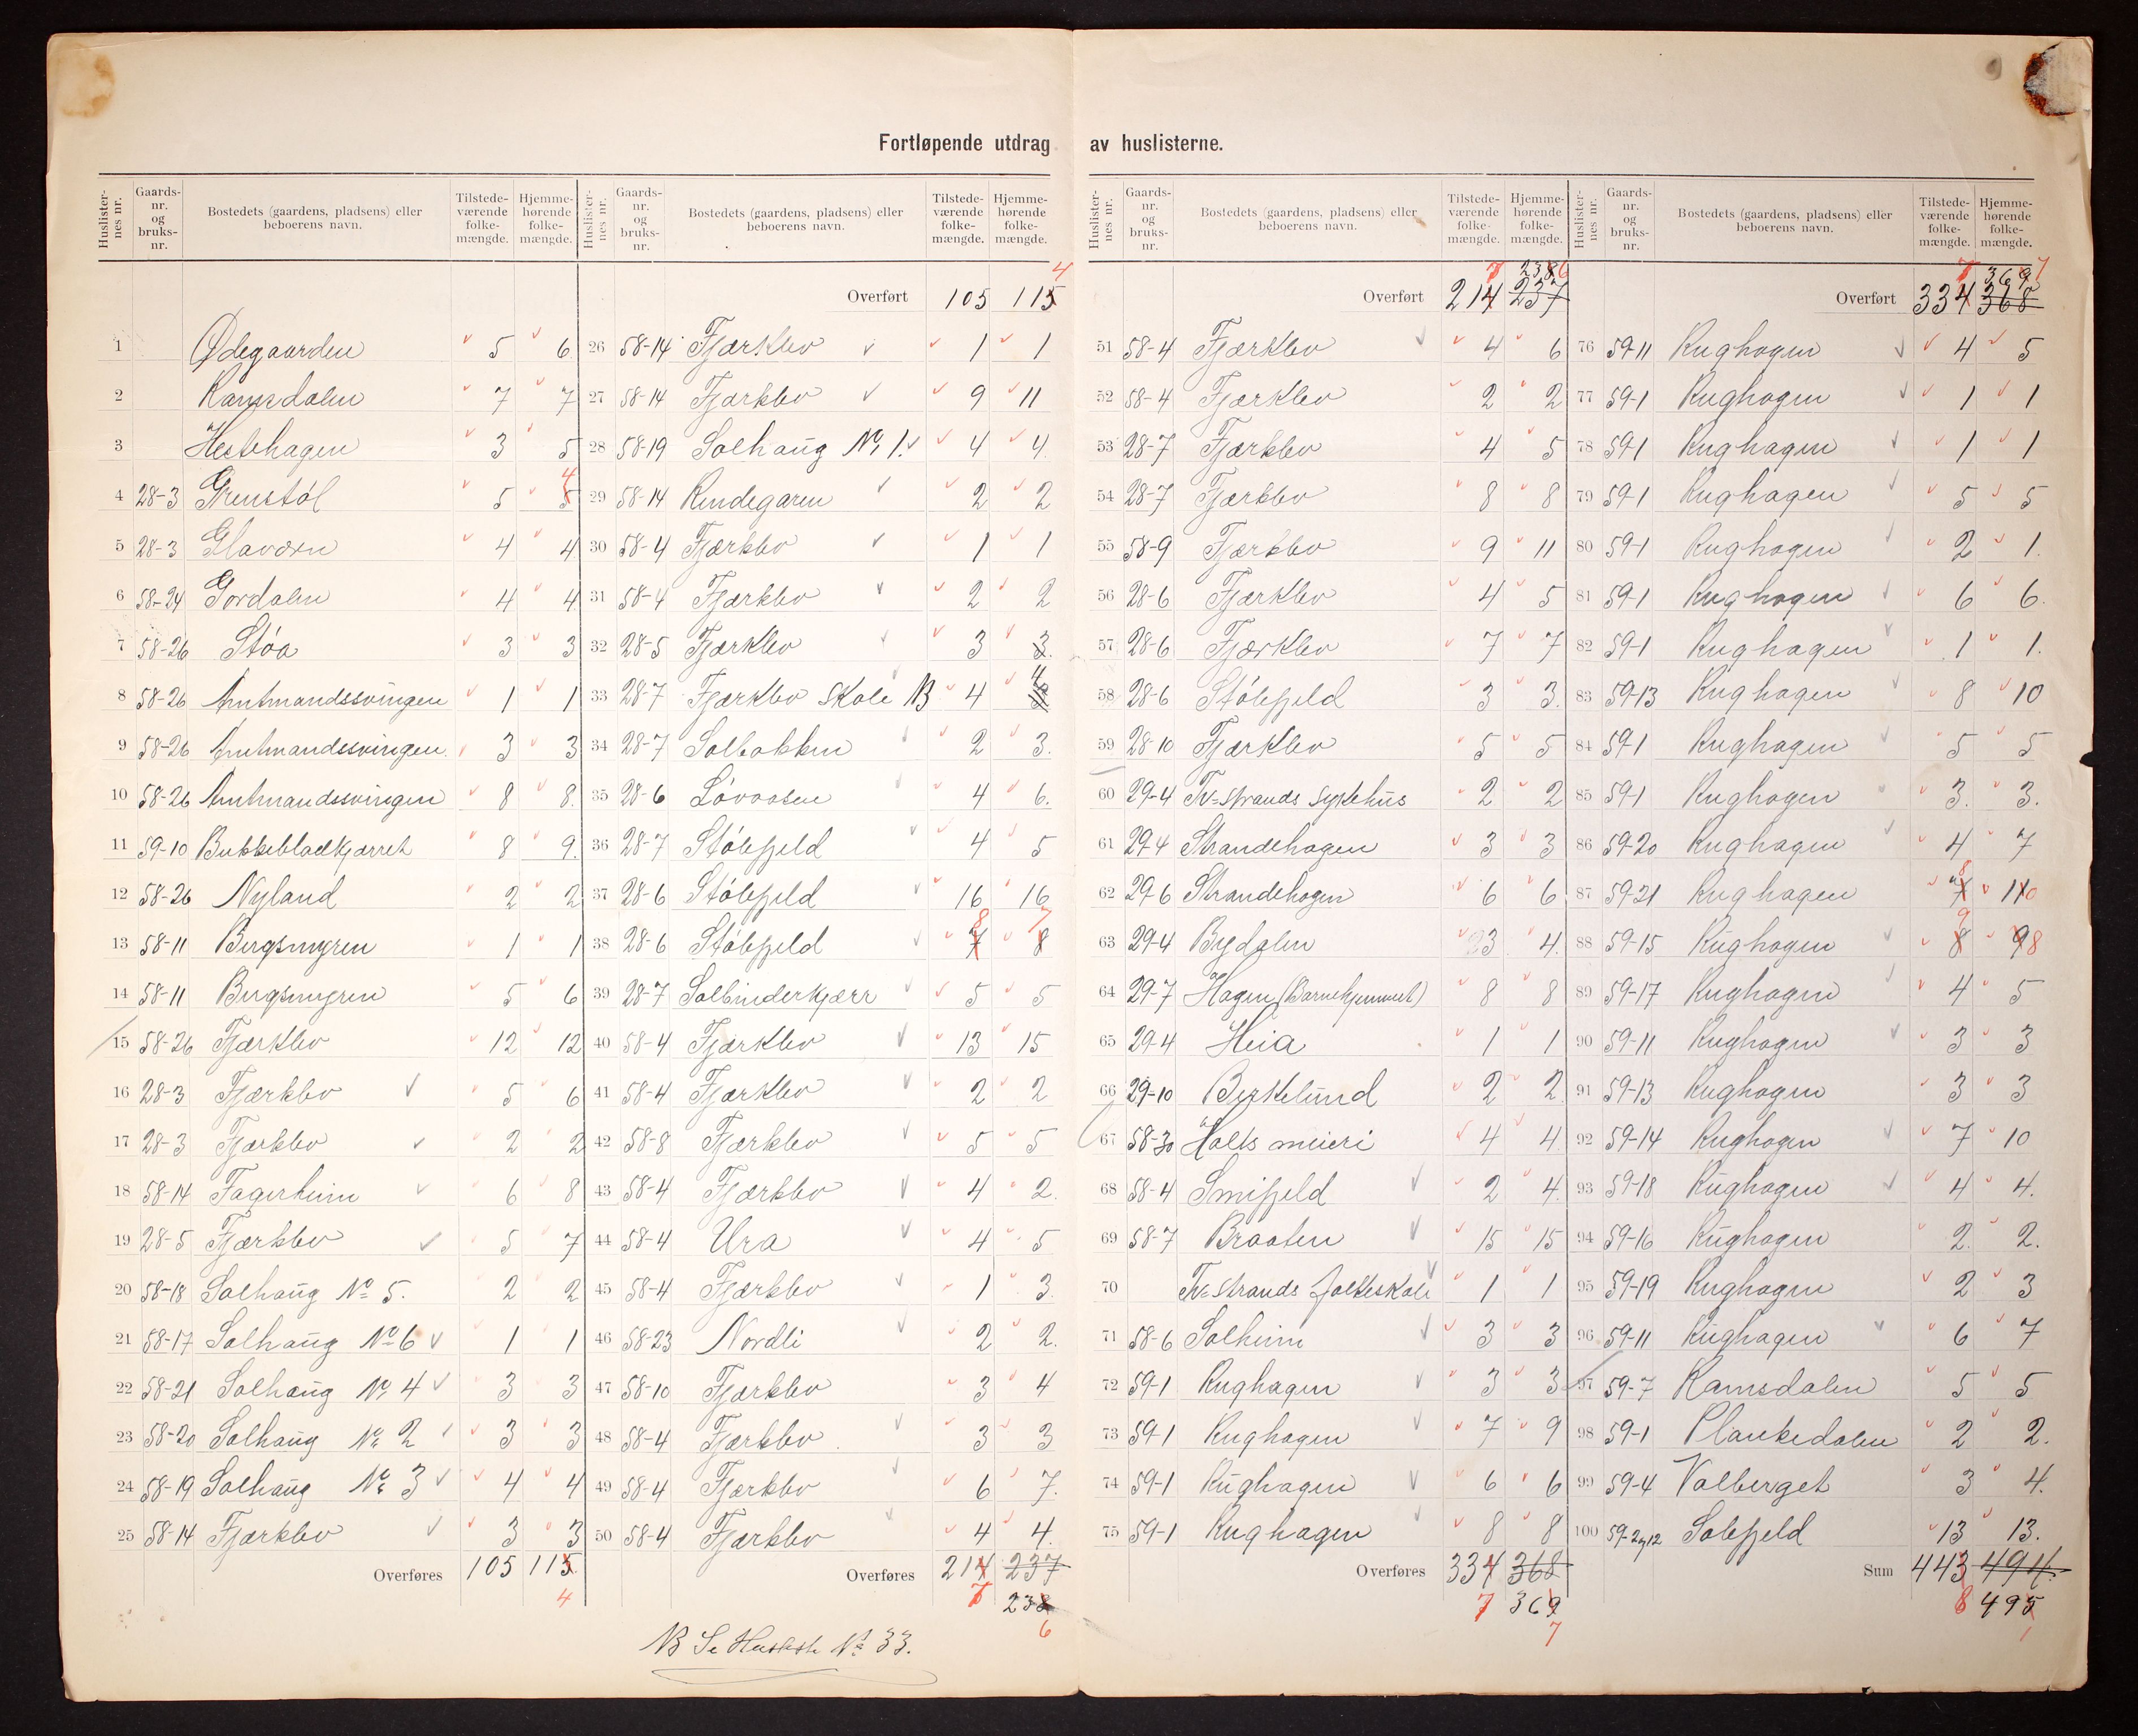 Fortløpende utdrag av huslisterne.
Huslisternes nr. | Gaards-nr. og bruks-nr. | Bostedets (gaardens, pladsens) eller beboerens navn. | Tilstede-værende folke-mængde. | Hjemme-hørende folke-mængde.
1 Ødegaarden 5 6
2 Ramsdalen 7 7
3 Hestehagen 3 5
4 28-3 Grenstøl 5 5 4
5 28-3 4 4
6 58-24 Gordalen 4 4
7 58-26 Støa 3 3
8 58-26 Amtmandssvingen 1 1
9 58-26 Amtmandssvingen 3 3
10 58-26 Amtmandssvingen 8 8.
11 59-10 Bukkebladkjærret 8 9.
12 58-26 Nyland 2 2
13 58-11 Bergsmyren 1 1
14 58-11 Bergsmyren 5 6
15 58-26 Fjærklev 12 12
16 28-3 Fjærklev 5 6
17 28-3 Fjærklev 2 2
18 58-14 Fagerheim 6 8
19 28-5 Fjærklev 5 7
20 58-18 Solhaug No 5. 2 2
21 58-17 Solhaug No 6 1 1
22 58-21 Solhaug No 4 3 3
23 58-20 Solhaug No 2 3 3
24 58-19 Solhaug No 3 4 4
25 58-14 Fjærklev 3 3
Overføres 105 115
4
Huslisternes nr. | Gaards-nr. og bruks-nr. | Bostedets (gaardens, pladsens) eller beboerens navn. | Tilstede-værende folke-mængde. | Hjemme-hørende folke-mængde.
4
Overført 105 115
26 58-14 Fjærklev 1 1
27 58-14 Fjærklev 9 11
28 58-19 Solhaug No 1. 4 4
29 58-14 Rindegaren 2 2
30 58-4 Fjærklev 1 1
31 58-4 Fjærklev 2 2
32 28-5 Fjærklev 3 3.
33 28-7 Fjærklev Skole NB 4
34 28-7 Solbakken 2 3.
35 28-6 Løvaasen 4 6.
36 28-7 Stølefjeld 4 5
37 28-6 Stølefjeld 16 16
38 28-6 Stølefjeld 7 8 8 7
39 28-7 Solbinderkjærr 5 5
40 58-4 Fjærklev 13 15
41 58-4 Fjærklev 2 2
42 58-8 Fjærklev 5 5
43 58-4 Fjærklev 4 2.
44 58-4 Ura 4 5
45 58-4 Fjærklev 1 3.
46 58-23 Nordli 2 2.
47 58-10 Fjærklev 3 4
48 58-4 Fjærklev 3 3
49 58-4 Fjærklev 6 7.
50 58-4 Fjærklev 4 4.
Overføres 214 237
7 238
6
NB Se Husliste No 33.
Huslisternes nr. | Gaards-nr. og bruks-nr. | Bostedets (gaardens, pladsens) eller beboerens navn. | Tilstede-værende folke-mængde. | Hjemme-hørende folke-mængde.
7 238 6
Overført 214 237
51 58-4 Fjærklev 4 6
52 58-4 Fjærklev 2 2
53 28-7 Fjærklev 4 5
54 28-7 Fjærklev 8 8
55 58-9 Fjærklev 9 11
56 28-6 Fjærklev 4 5
57 28-6 Fjærklev 7 7
58 28-6 Stølefjeld 3 3.
59 28-10 Fjærklev 5 5
60 29-4 Tv=strands sykehus 2 2
61 29-4 Strandehagen 3 3
62 29-6 Strandehagen 6 6
63 29-4 Bydalen 3 4.
64 29-7 Hagen (Barnehjemmet) 8 8
65 29-4 Heia 1 1
66 29-10 Birkelund 2 2
67 58-30 Holts meieri 4 4
68 58-4 Smifjeld 2 4.
69 58-7 Braaten 15 15
70 Tv=strands folkeskole 1 1
71 58-6 Solheim 3 3
72 59-1 Rughagen 3 3
73 59-1 Rughagen 7 9
74 59-1 Rughagen 6 6
75 59-1 Rughagen 8 8
Overføres 334 368
7 369
7
Huslisternes nr. | Gaards-nr. og bruks-nr. | Bostedets (gaardens, pladsens) eller beboerens navn. | Tilstede-værende folke-mængde. | Hjemme-hørende folke-mængde.
7 369 7
Overført 334 368
76 59-11 Rughagen 4 5
77 59-1 Rughagen 1 1
78 59-1 Rughagen 1 1
79 59-1 Rughagen 5 5
80 59-1 Rughagen 2 1.
81 59-1 Rughagen 6 6.
82 59-1 Rughagen 1 1.
83 59-13 Rughagen 8 10
84 59-1 Rughagen 5 5
85 59-1 Rughagen 3. 3.
86 59-20 Rughagen 4 7
87 59-21 Rughagen 7 8 11 0
88 59-15 Rughagen 8 9 9 8
89 59-17 Rughagen 4 5
90 59-11 Rughagen 3 3
91 59-13 Rughagen 3 3
92 59-14 Rughagen 7 10
93 59-18 Rughagen 4 4.
94 59-16 Rughagen 2. 2.
95 59-19 Rughagen 2 3
96 59-11 Rughagen 6 7
97 59-7 Ramsdalen 5 5
98 59-1 Plankedalen 2 2.
99 59-4 Valberget 3 4.
100 59-2og12 Solefjeld 13 13.
Sum 443 494.
8 495
1